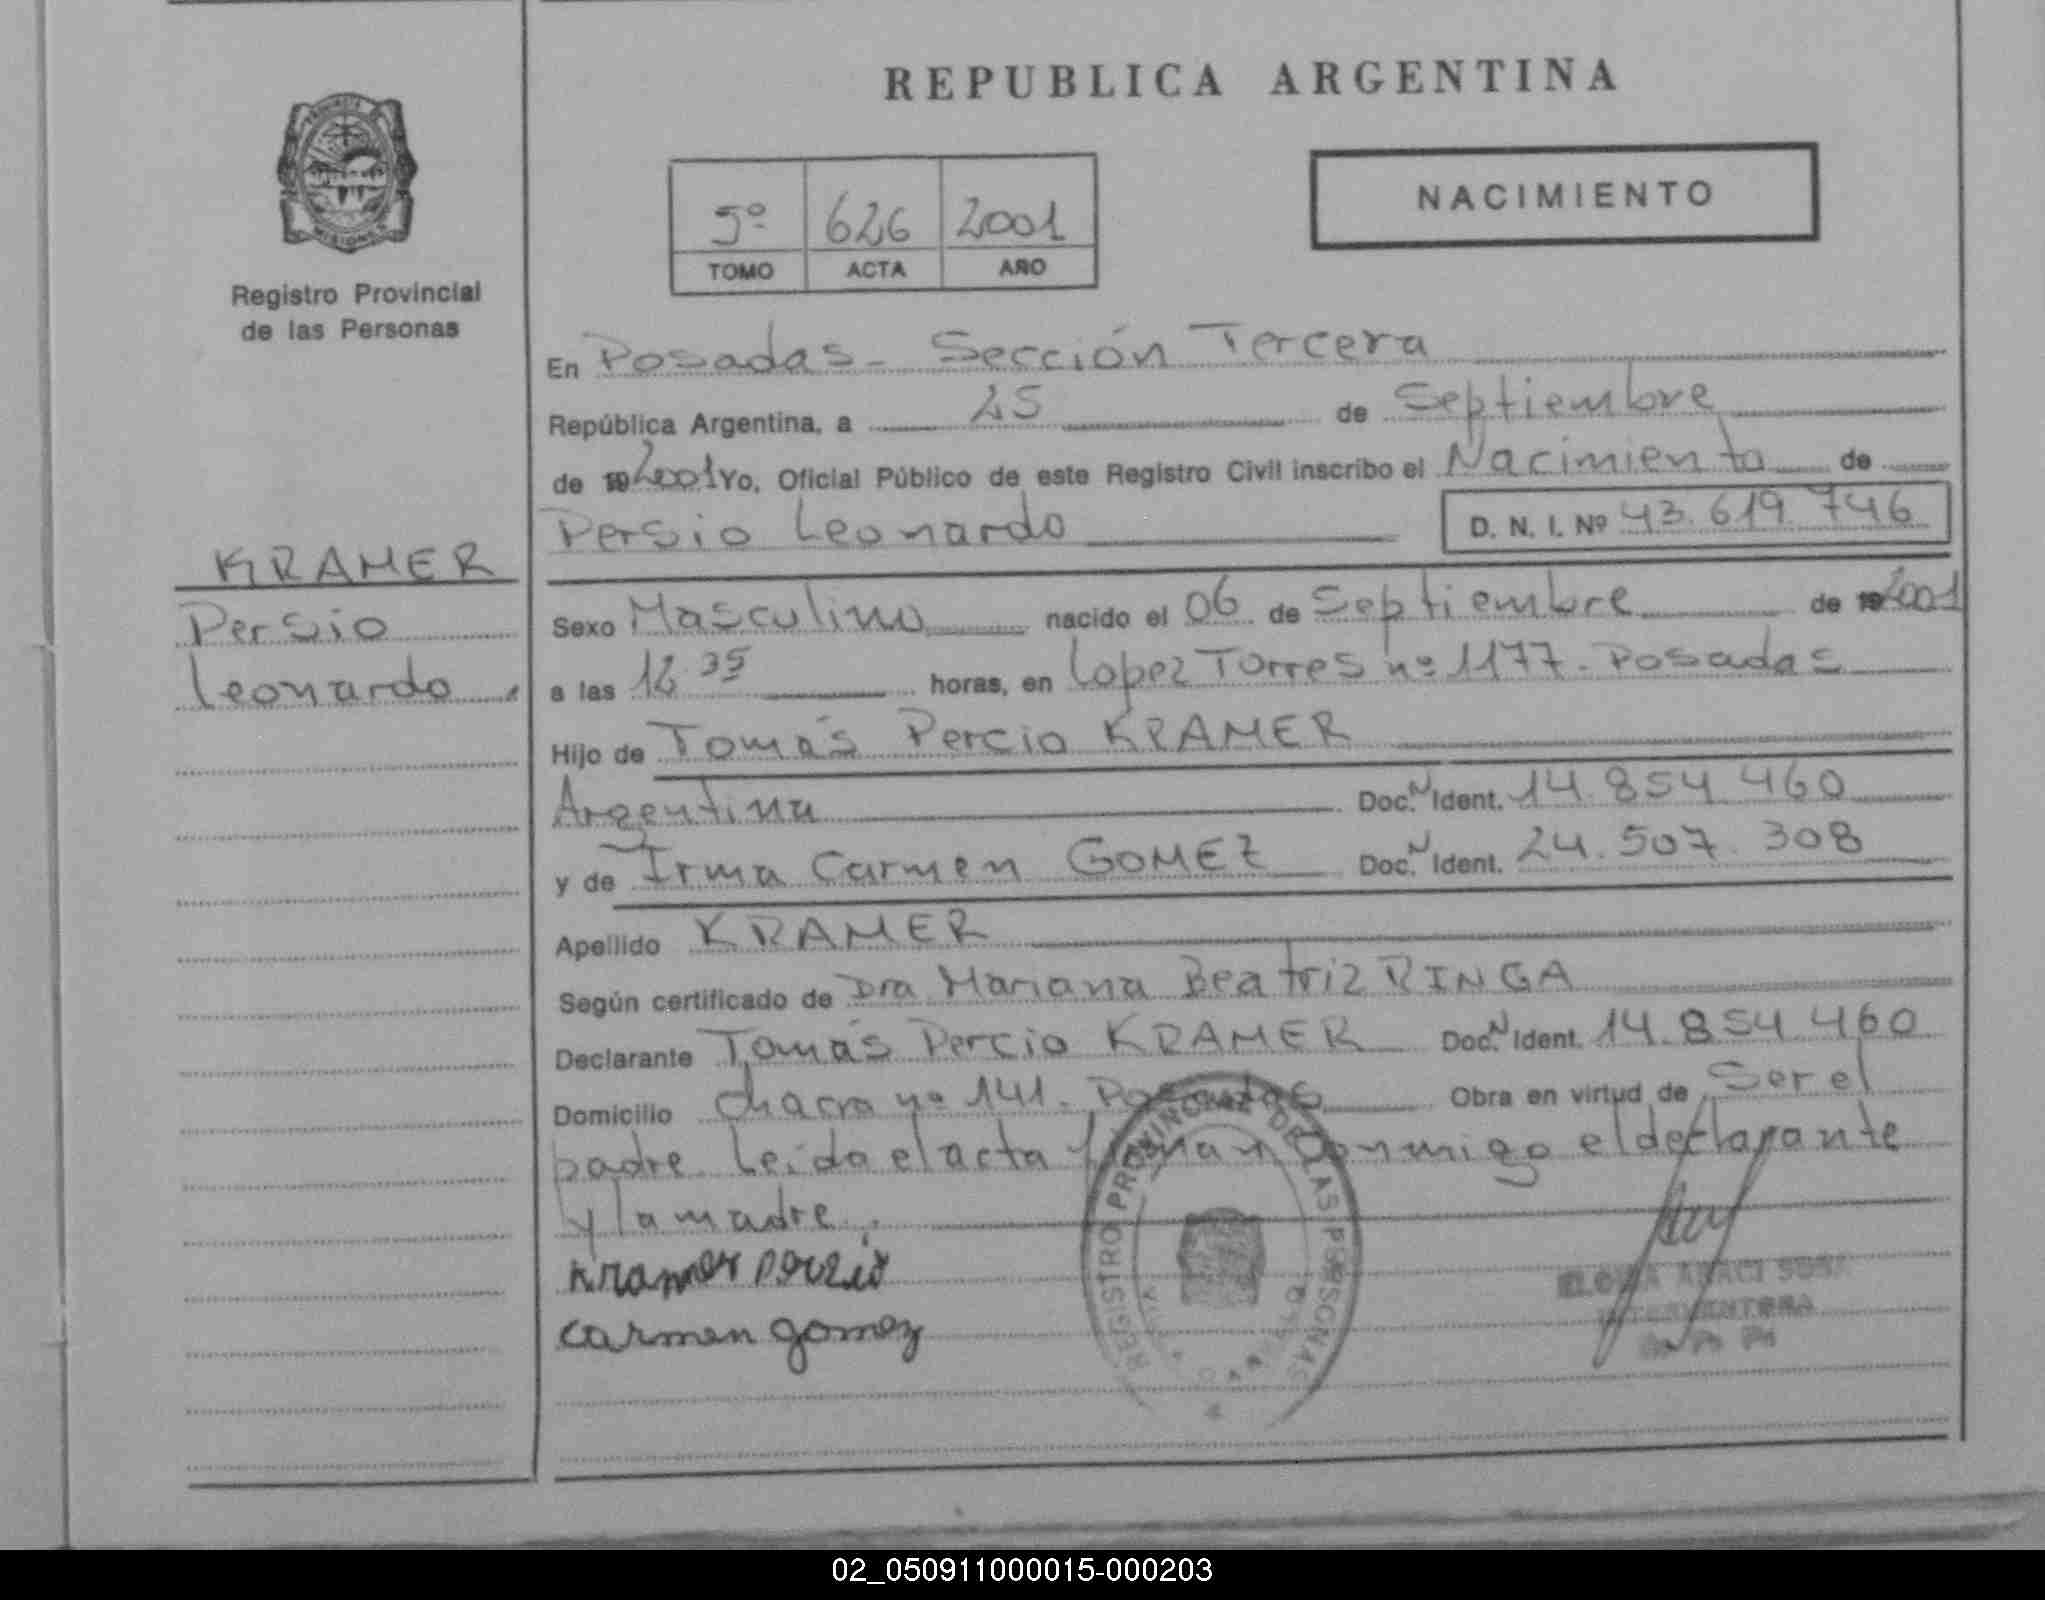 REPUBLICA ARGENTINA
NACIMIENTO
5º 626 2001
TOMO ACTA AÑO
MISIONES
Registro Provincial
de las Personas
KRAMER
Persio
Leonardo
En Posadas - Sección Tercera
República Argentina, a 25 de Septiembre
de 192001 Yo, Oficial Público de este Registro Civil inscribo el Nacimiento de
Persio Leonardo D. N. I. Nº 43.619.746
Sexo Masculino nacido el 06 de Septiembre de 192001
a las 12 35 horas, en Lopez Torres nº 1177. Posadas
Hijo de Tomás Percio KRAMER
Argentina Doc. N Ident. 14.854.460
y de Irma Carmen GOMEZ Doc. N Ident. 24.507.308
Apellido KRAMER
Según certificado de Dra Mariana Beatriz RINGA
Declarante Tomás Percio KRAMER Doc. N Ident. 14.854.460
Domicilio Chacra nº 141. Posadas Obra en virtud de Ser el
padre. Leída el acta firman conmigo el declarante
y la madre.
Kramer Percio
Carmen gomez
REGISTRO PROVINCIAL DE LAS PERSONAS
INTERVENTORA
02_050911000015-000203